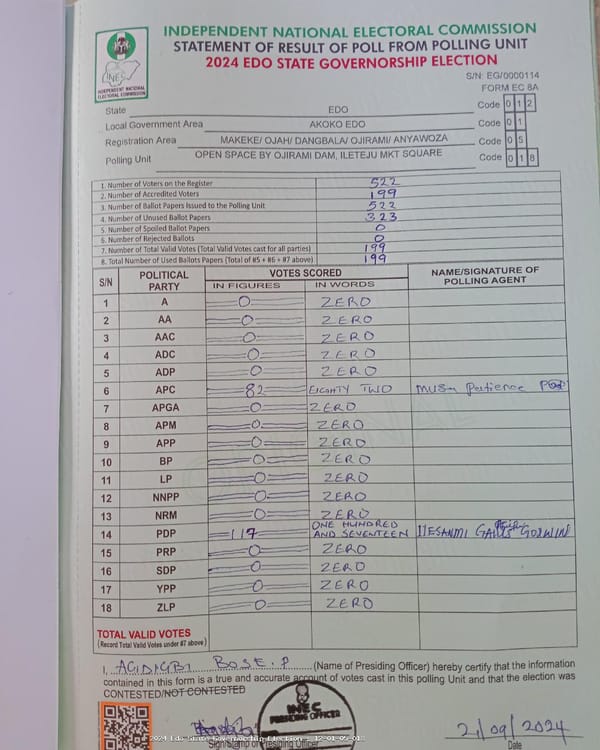 INDEPENDENT NATIONAL ELECTORAL COMMISSION
STATEMENT OF RESULT OF POLL FROM POLLING UNIT
2024 EDO STATE GOVERNORSHIP ELECTION
INEC
INDEPENDENT NATIONAL
ELECTORAL COMMISSION
S/N: EG/0000114
FORM EC 8A
State EDO Code 0 1 2
Local Government Area AKOKO EDO Code 0 1
Registration Area MAKEKE/ OJAH/ DANGBALA/ OJIRAMI/ ANYAWOZA Code 0 5
Polling Unit OPEN SPACE BY OJIRAMI DAM, ILETEJU MKT SQUARE Code 0 1 8
1. Number of Voters on the Register 522
2. Number of Accredited Voters 199
3. Number of Ballot Papers Issued to the Polling Unit 522
4. Number of Unused Ballot Papers 323
5. Number of Spoiled Ballot Papers 0
6. Number of Rejected Ballots 0
7. Number of Total Valid Votes (Total Valid Votes cast for all parties) 199
8. Total Number of Used Ballots Papers (Total of #5 + #6 + #7 above) 199
S/N POLITICAL PARTY VOTES SCORED NAME/SIGNATURE OF POLLING AGENT
IN FIGURES IN WORDS
1 A 0 ZERO
2 AA 0 ZERO
3 AAC 0 ZERO
4 ADC 0 ZERO
5 ADP 0 ZERO
6 APC 82 EIGHTY TWO Musa Patience
7 APGA 0 ZERO
8 APM 0 ZERO
9 APP 0 ZERO
10 BP 0 ZERO
11 LP 0 ZERO
12 NNPP 0 ZERO
13 NRM 0 ZERO
14 PDP 117 ONE HUNDRED AND SEVENTEEN ILESANMI GODWIN
15 PRP 0 ZERO
16 SDP 0 ZERO
17 YPP 0 ZERO
18 ZLP 0 ZERO
TOTAL VALID VOTES
(Record Total Valid Votes under #7 above)
I, AGIDIGBI BOSE. P (Name of Presiding Officer) hereby certify that the information
contained in this form is a true and accurate account of votes cast in this polling Unit and that the election was
CONTESTED/NOT CONTESTED
INEC
PRESIDING OFFICER
21/09/2024
2024 Edo State Governorship Election - 12-01-05-018
Sign/Stamp of Presiding Officer Date